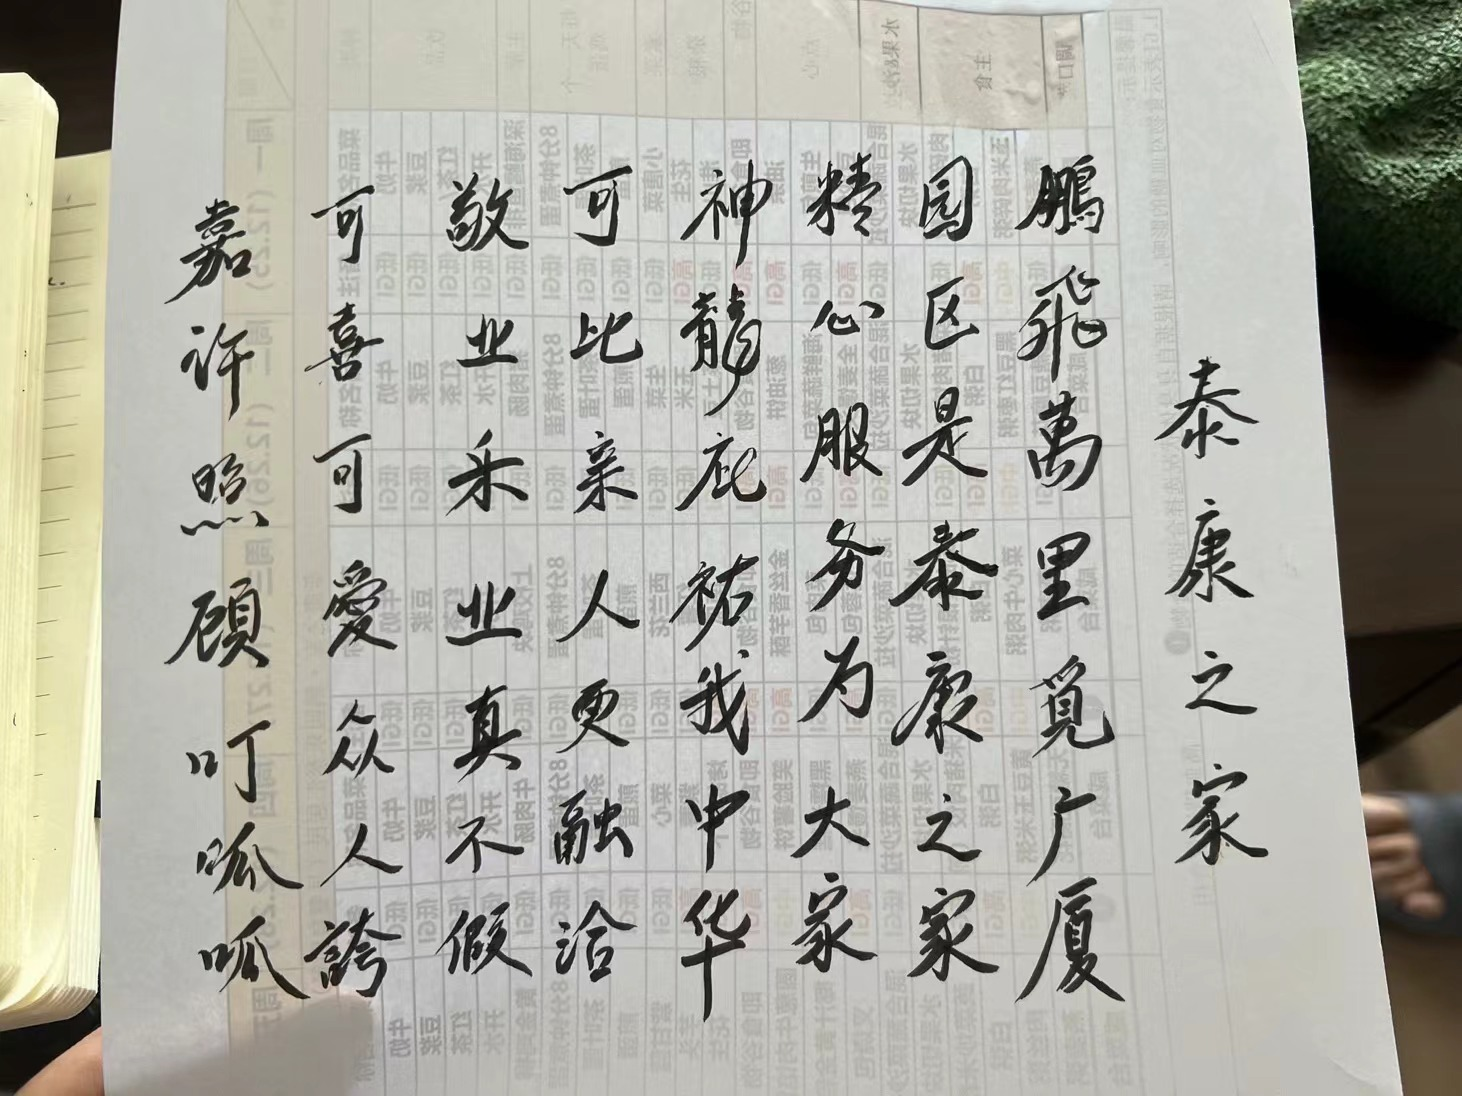 泰康之家
鹏飛萬里觅广厦
园区是泰康之家
精心服务为大家
神龍庇祐我中华
可比亲人更融洽
敬业乐业真不假
可喜可愛众人誇
嘉许照顾叮呱呱